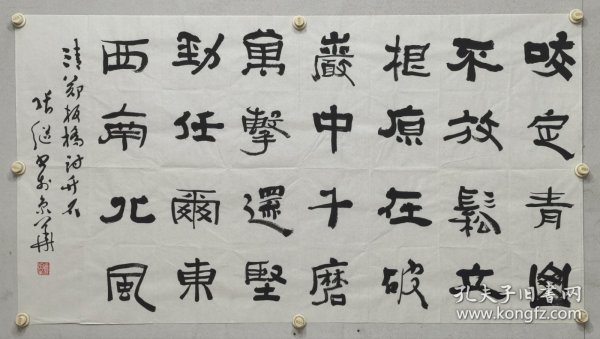 咬定青山
不放鬆立
根原在破
巖中千磨
萬擊還堅
勁任爾東
西南北風
清鄭板橋詩竹石
張繼書於京華
孔夫子旧书网
www.kongfz.com